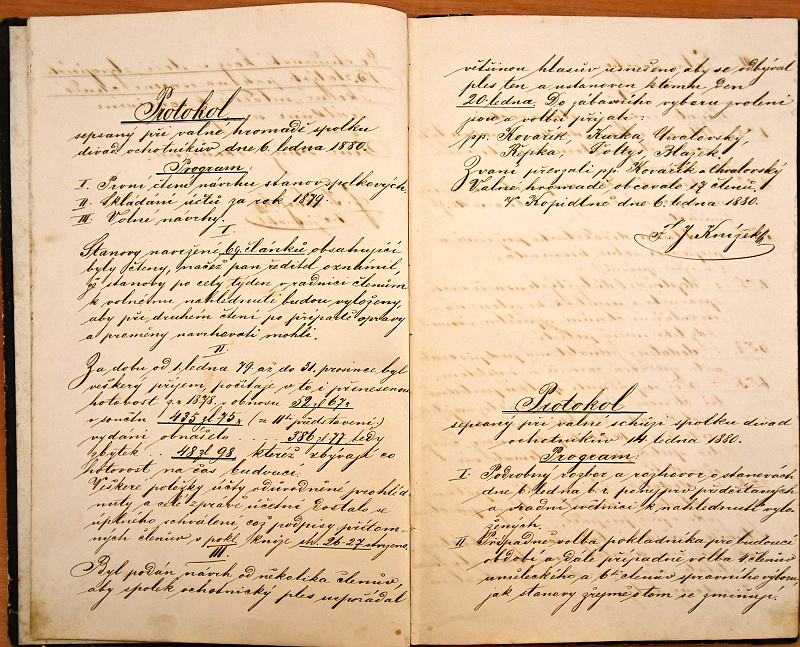 Protokol
sepsaný při valné hromadě spolku
divad. ochotníkův dne 6. ledna 1880.
Program
I. První čtení návrhu stanov spolkových.
II. Skládání účtů za rok 1879.
III. Volné návrhy.
I.
Stanovy navržené, 69 článků obsahující
byly čteny, načež pan ředitel oznámil,
že stanovy po celý týden v radnici členům
k volnému nahlédnutí budou vyloženy,
aby při druhém čtení po případě opravy
a proměny navrhovati mohli.
II.
Za dobu od 1. ledna 79 až do 31. prosince byl
veškerý příjem, počítaje v to i přenesenou
hotovost z r. 1878. v obnosu 52 zl 67 k
v součtu 435 zl 75 k (z 11ti představení)
vydání obnášelo . . . 386 zl 77 tedy
zbytek . . 48 zl 98, kteréž zbývají co
hotovost na čas budoucí.
Veškeré položky účtů odůvodněné prohléd
nuty a celé zprávě účetní dostalo se
úplného schválení, což podpisy přítom-
ných členův v pokl. knize str. 26-27
III.
Byl podán návrh od několika členův,
aby spolek ochotnický ples uspořádal
většinou hlasův usneseno, aby se odbýval
ples ten a ustanoven k tomu den
20. ledna. Do zábavního výboru zvoleni
jsou a volbu přijali:
pp. Kovařík, Kurka, Chvalovský,
Řepka, Foltys, Blažek.
Zvaní převzali pp. Kovařík a Chvalovský
Valné hromadě obcovalo 17 členů.
V Kopidlně dne 6. ledna 1880.
F. J. Knížek
Protokol
sepsaný při valné schůzi spolku divad
ochotníkův 14. ledna 1880.
Program:
I. Podrobný rozbor a rozhovor o stanovách
dne 6. ledna b. r. ponejprv předčítaných
a v radní světnici k nahlédnutí vylo
žených.
II. Případné volba pokladníka pro budoucí
období a dále případné volba 4 členův
uměleckého a 6ti členův správního výboru,
jak stanovy zřejmě o tom se zmiňují.